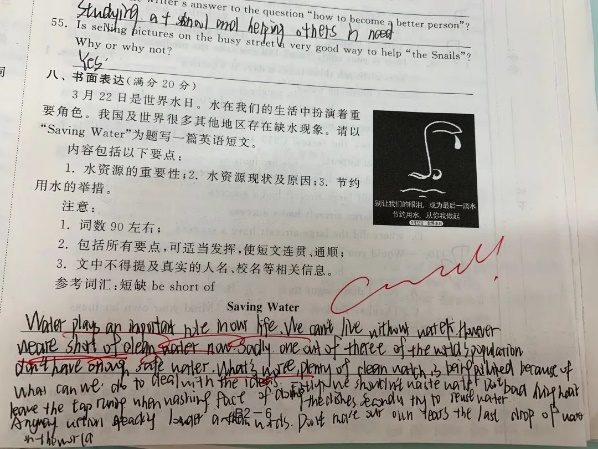 writer's answer to the question "how to become a better person"?
Studying at school and helping others in need
55. Is selling pictures on the busy street a very good way to help "the Snails"?
Why or why not?
Yes.
八、书面表达(满分20分)
3月22日是世界水日。水在我们的生活中扮演着重
要角色。我国及世界很多其他地区存在缺水现象。请以
“Saving Water”为题写一篇英语短文。
内容包括以下要点:
1. 水资源的重要性;2. 水资源现状及原因;3. 节约
用水的举措。
别让我们的眼泪,成为最后一滴水
节约用水,从你我做起
注意:
1. 词数90左右;
2. 包括所有要点,可适当发挥,使短文连贯、通顺;
3. 文中不得提及真实的人名、校名等相关信息。
参考词汇:短缺 be short of
Saving Water
Water plays an important role in our life. We can't live without water. However
we are short of clean water now. Sadly one out of three of the world population
don't have enough safe water. What's more, plenty of clean is being polluted because of
What can we do to deal with the Firstly we shouldn't waste water Don't
leave the tap runing when washing face or the clothes secondly try to reuse water
Anyway action speaks louder than words. Don't make our own tears the last drop of water
in the world
B2-6